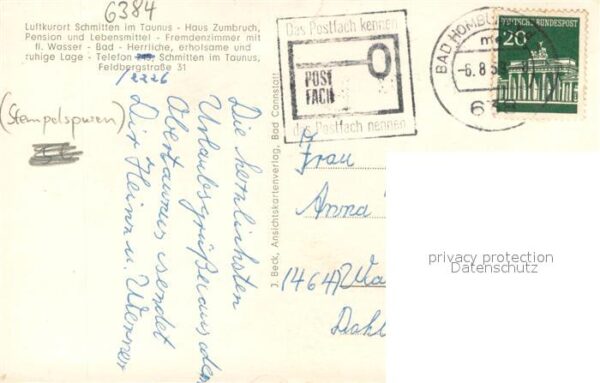 6384
Luftkurort Schmitten im Taunus - Haus Zumbruch,
Pension und Lebensmittel - Fremdenzimmer mit
fl. Wasser - Bad - Herrliche, erholsame und
ruhige Lage - Telefon Schmitten im Taunus,
Feldbergstraße 31
/2226
(Stempelspuren)
Die herrlichsten
Urlaubsgrüße aus dem
Obertaunus sendet
Dir Heinz u. Werner
J. Beck, Ansichtskartenverlag, Bad Cannstatt
Das Postfach kennen
POST
FACH
das Postfach nennen
BAD HOMBU
-6.8
DEUTSCHE BUNDESPOST
20
Frau
Anna
(464) Wa
Dahl
privacy protection
Datenschutz